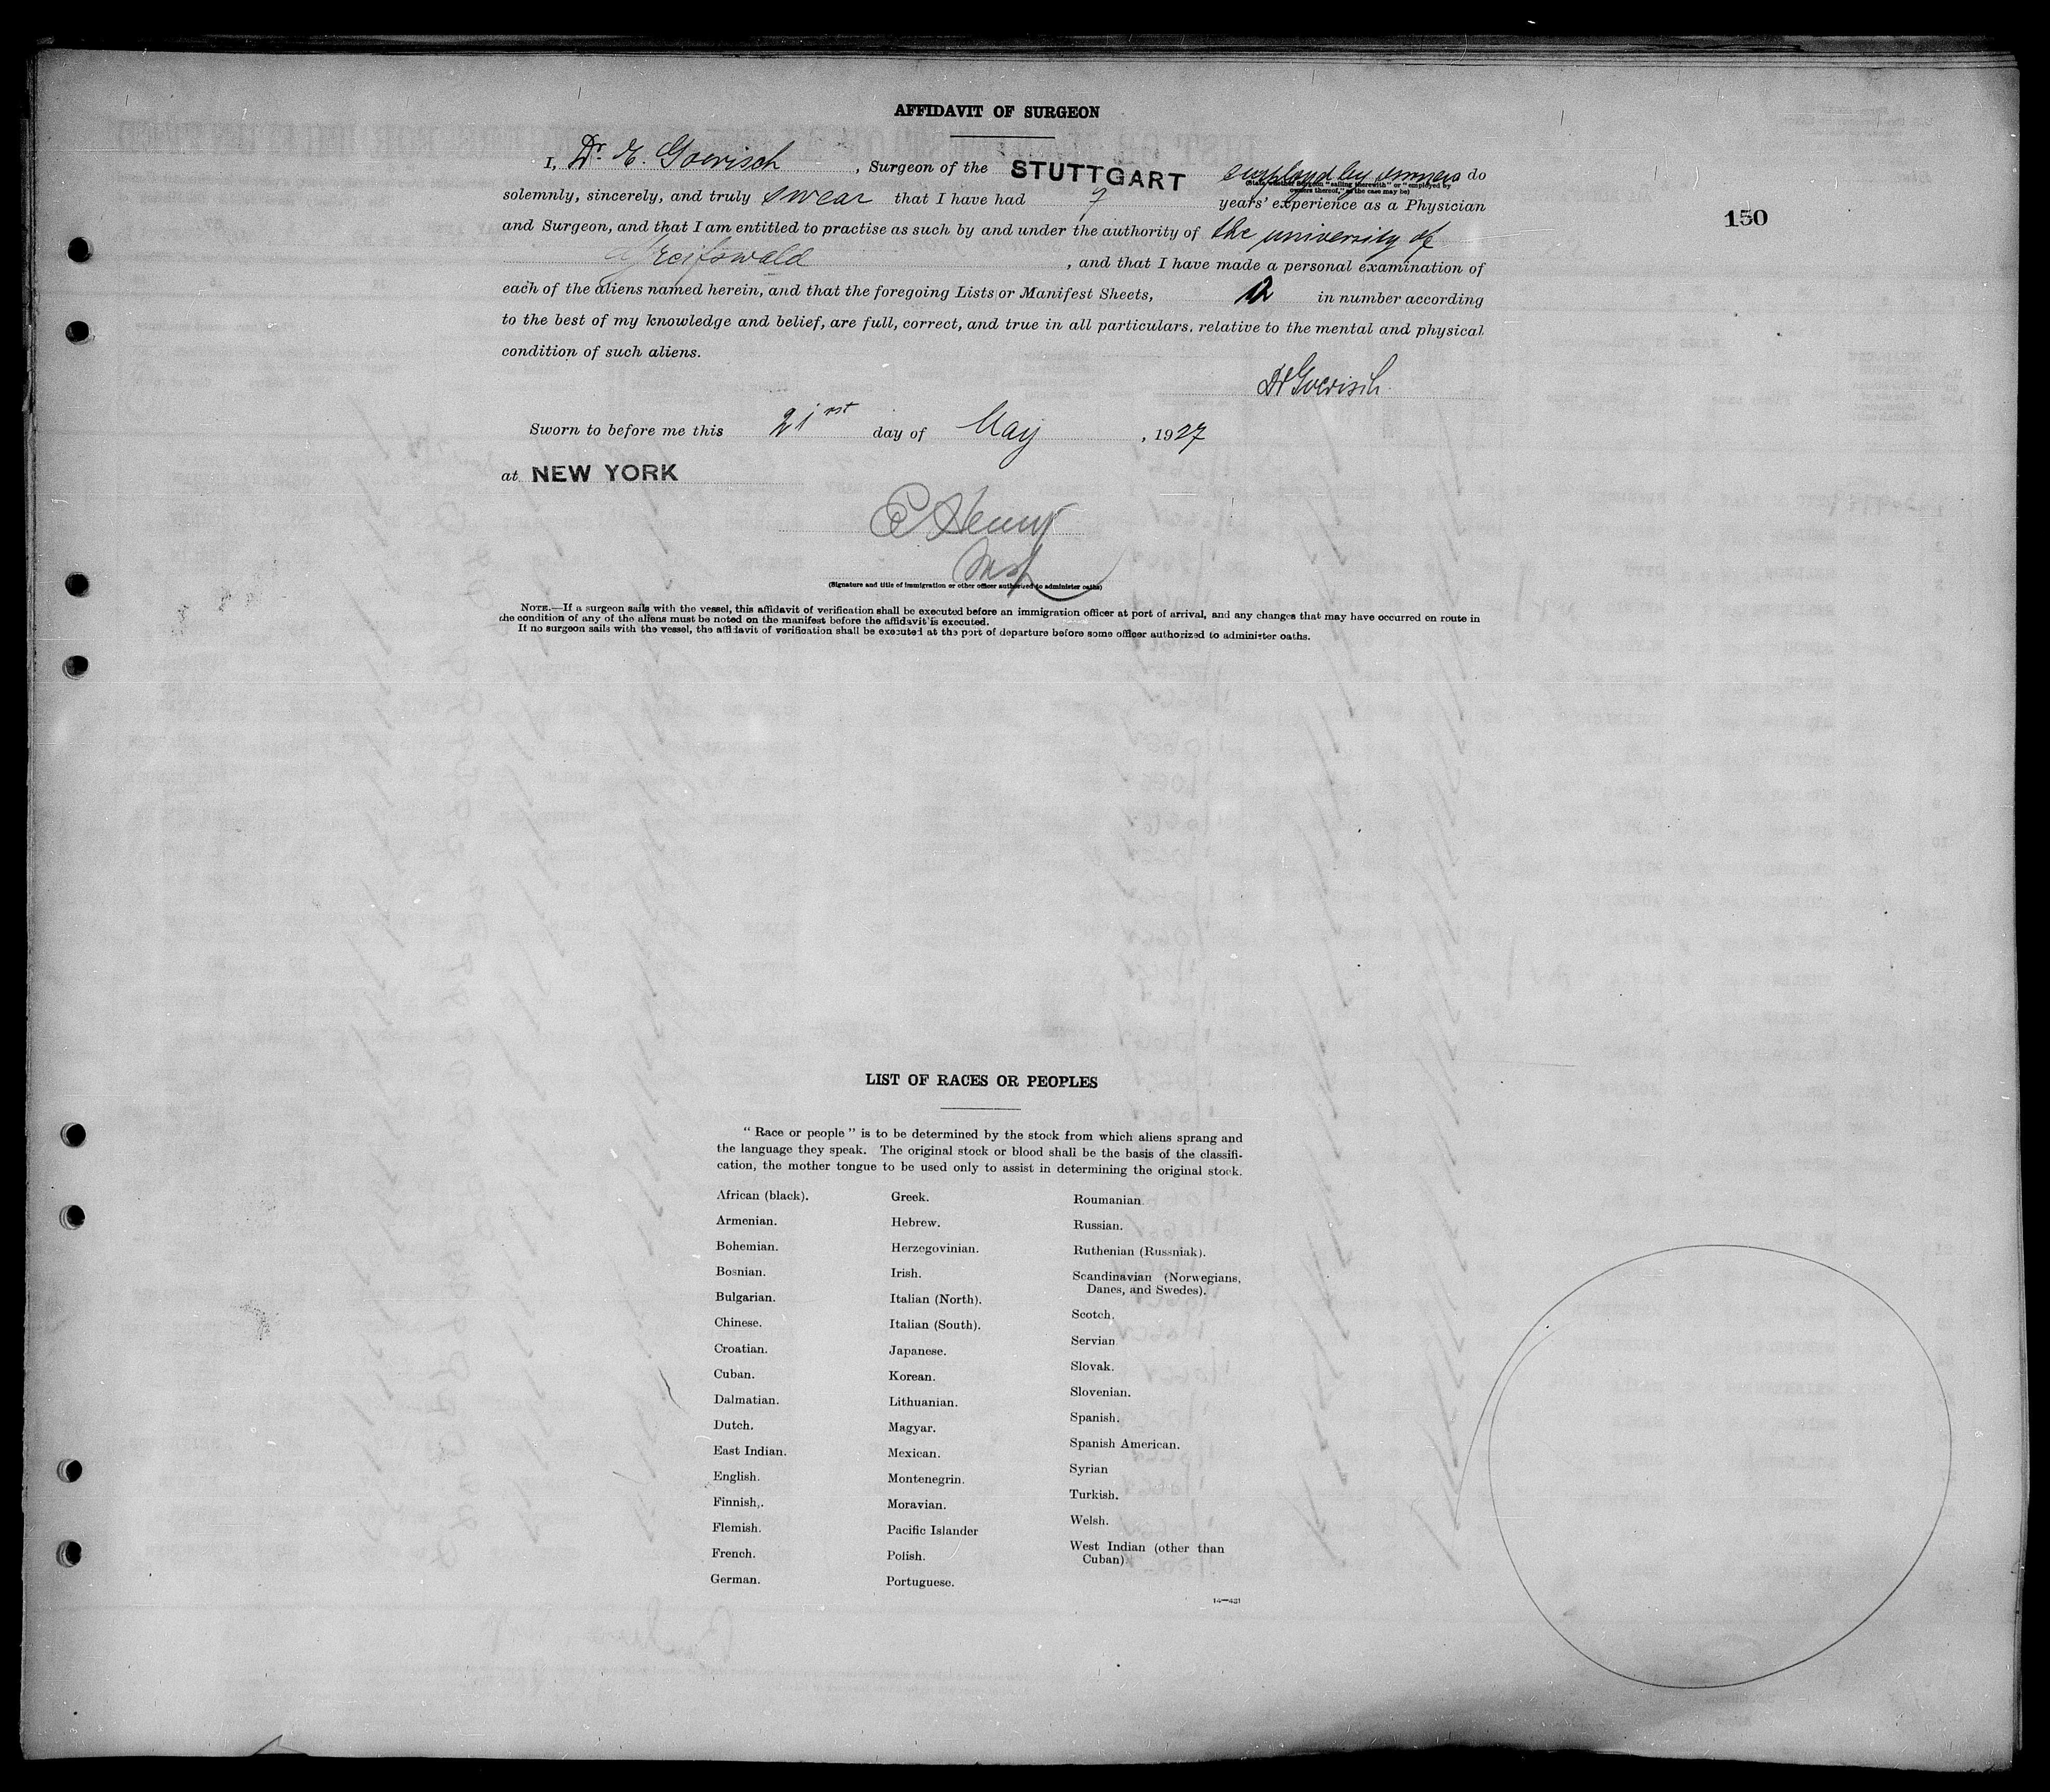 AFFIDAVIT OF SURGEON
I, Dr. E. Goerisch, Surgeon of the STUTTGART employed by owners do
(State whether Surgeon "sailing therewith" or "employed by
owners thereof," as the case may be)
150
solemnly, sincerely, and truly swear that I have had 7 years' experience as a Physician
and Surgeon, and that I am entitled to practise as such by and under the authority of the university of
Greifswald, and that I have made a personal examination of
each of the aliens named herein, and that the foregoing Lists or Manifest Sheets, in number according
to the best of my knowledge and belief, are full, correct, and true in all particulars, relative to the mental and physical
condition of such aliens.
Dr Goerisch.
Sworn to before me this 21st day of May, 1927
at NEW YORK
Henry
Insp
(Signature and title of immigration or other officer authorized to administer oaths)
NOTE.—If a surgeon sails with the vessel, this affidavit of verification shall be executed before an immigration officer at port of arrival, and any changes that may have occurred en route in
the condition of any of the aliens must be noted on the manifest before the affidavit is executed.
If no surgeon sails with the vessel, the affidavit of verification shall be executed at the port of departure before some officer authorized to administer oaths.
LIST OF RACES OR PEOPLES
"Race or people" is to be determined by the stock from which aliens sprang and
the language they speak. The original stock or blood shall be the basis of the classifi-
cation, the mother tongue to be used only to assist in determining the original stock.
African (black).
Armenian.
Bohemian.
Bosnian.
Bulgarian.
Chinese.
Croatian.
Cuban.
Dalmatian.
Dutch.
East Indian.
English.
Finnish.
Flemish.
French.
German.
Greek.
Hebrew.
Herzegovinian.
Irish.
Italian (North).
Italian (South).
Japanese.
Korean.
Lithuanian.
Magyar.
Mexican.
Montenegrin.
Moravian.
Pacific Islander
Polish.
Portuguese.
Roumanian
Russian.
Ruthenian (Russniak).
Scandinavian (Norwegians,
Danes, and Swedes).
Scotch.
Servian
Slovak.
Slovenian.
Spanish.
Spanish American.
Syrian
Turkish.
Welsh.
West Indian (other than
Cuban)
14—431